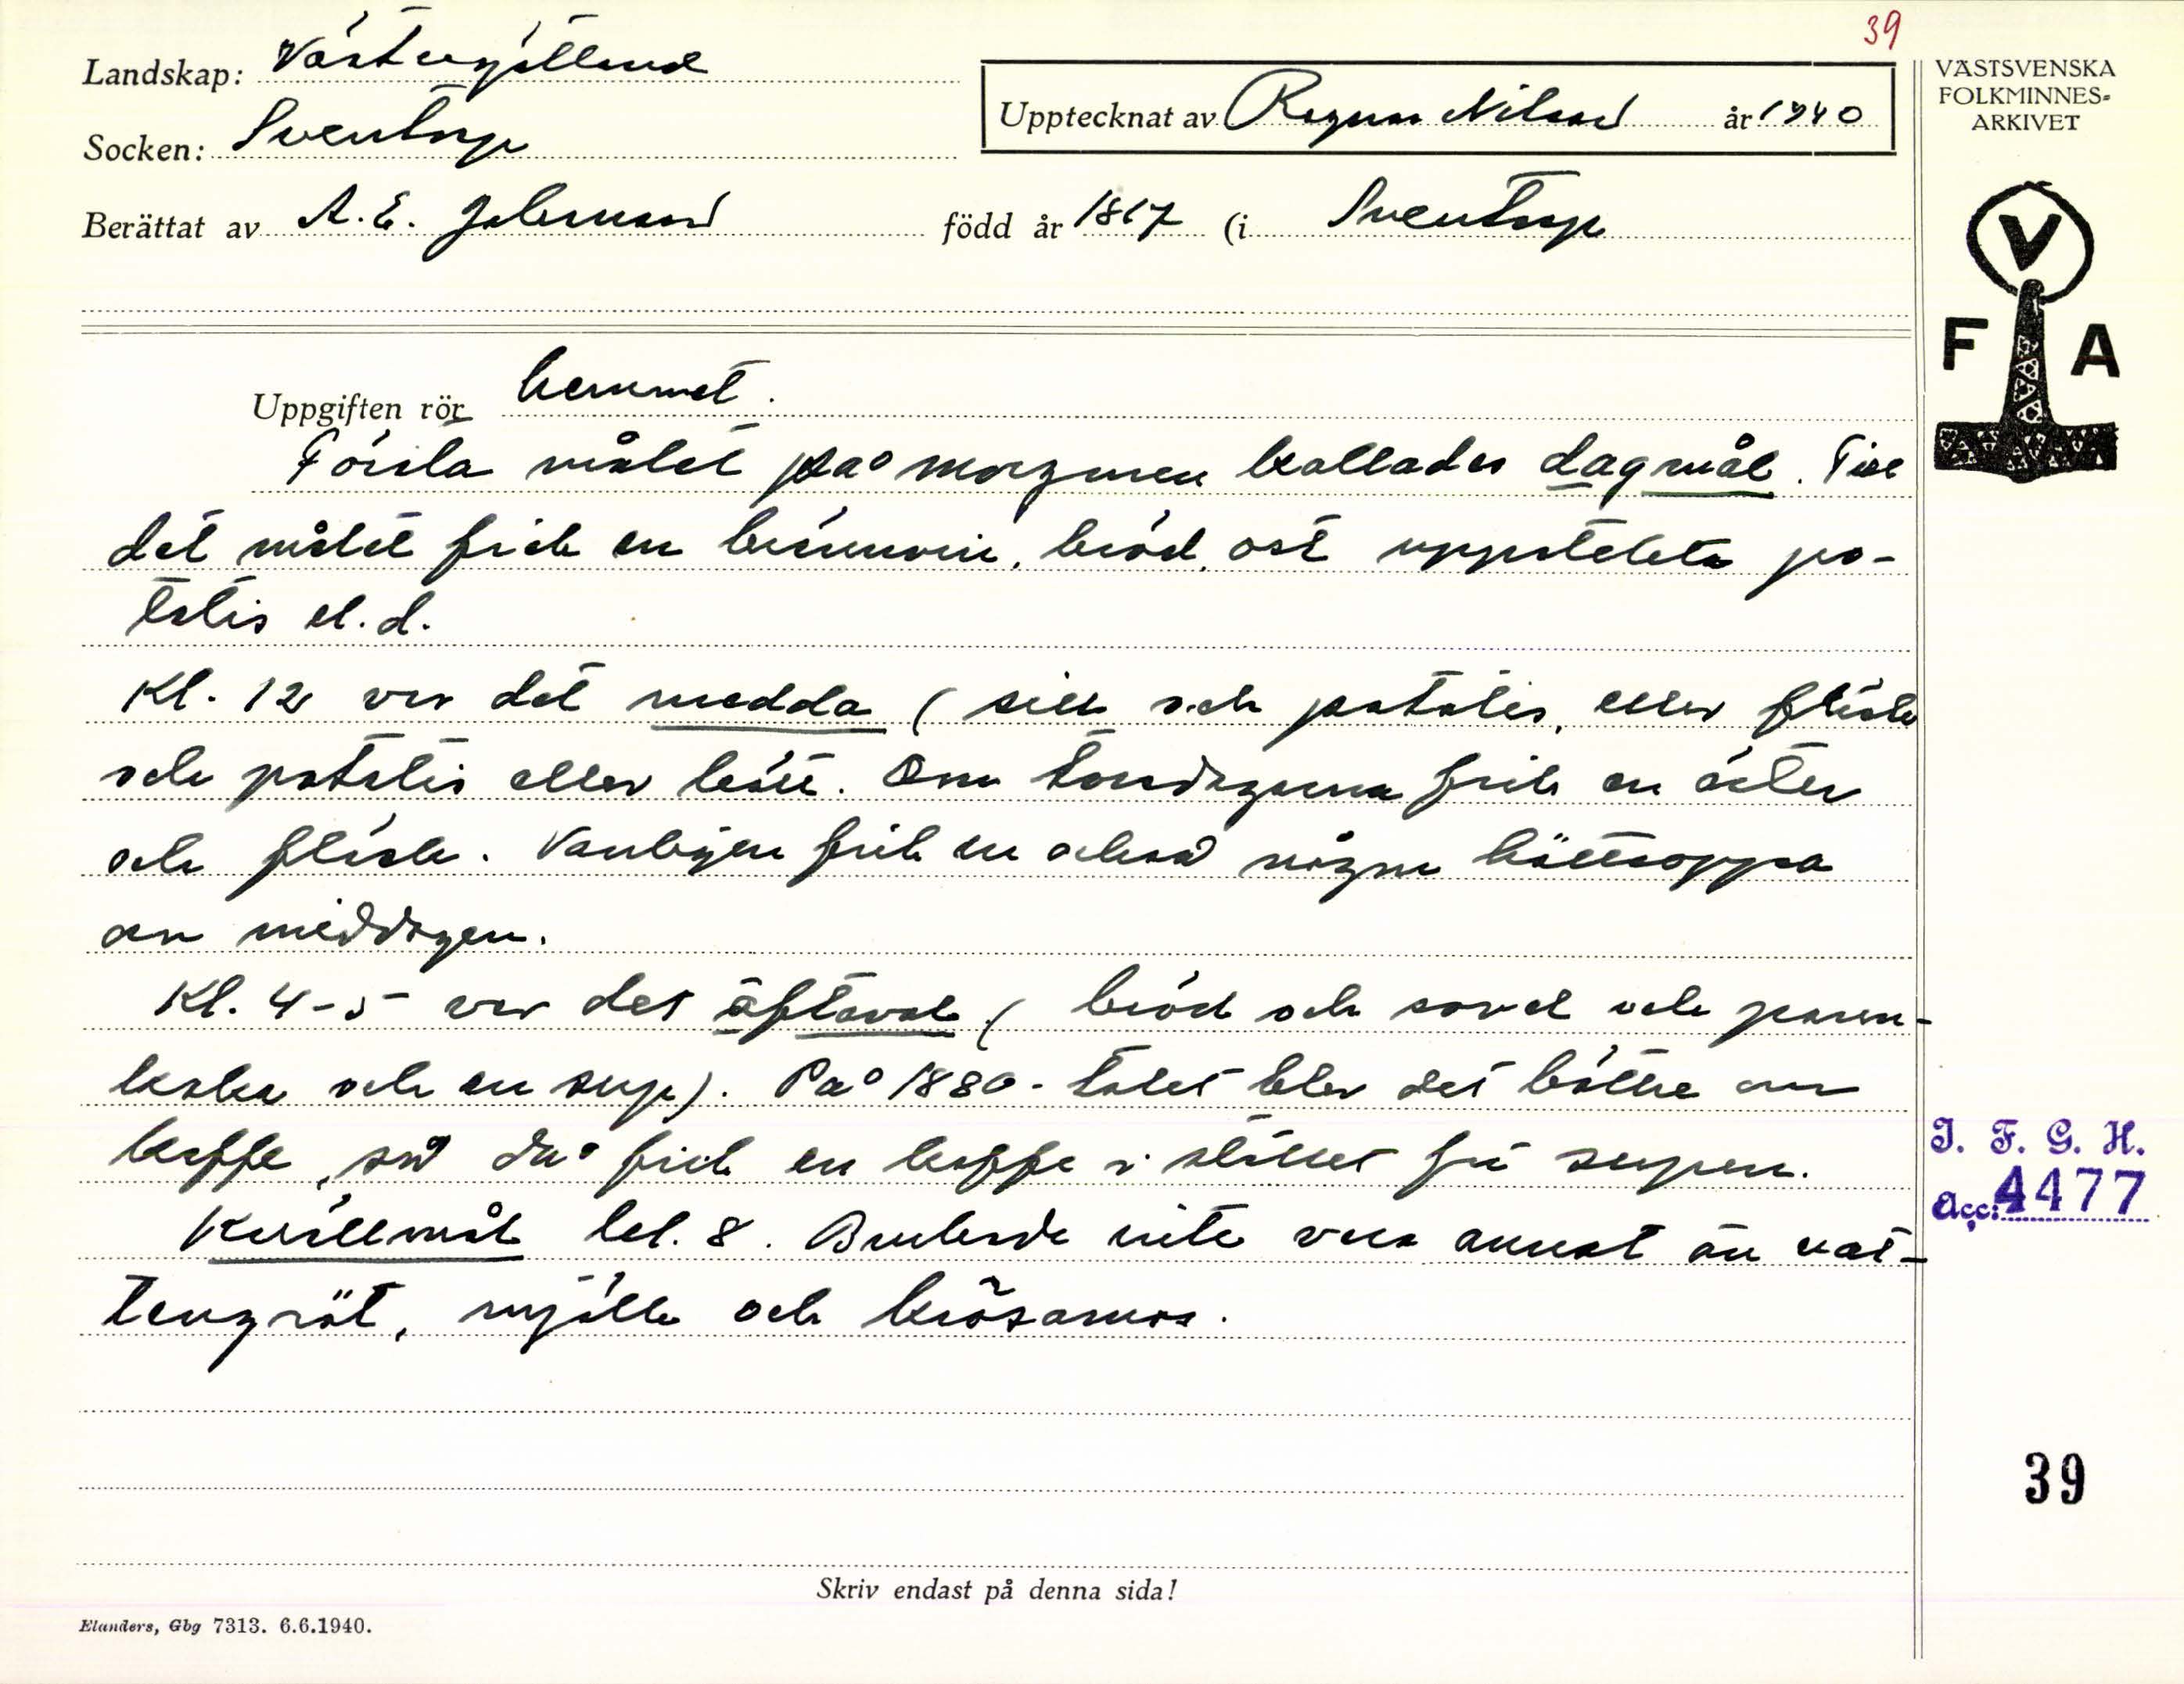 39
Landskap: Västergötland
Socken: Sventorp
Upptecknat av Ragnar Nilsson år 1940
VÄSTSVENSKA
FOLKMINNES-
ARKIVET
Berättat av A. E. Johansson född år 1867 (i Sventorp
V
F A
Uppgiften rör hemmet.
Första målet på morgonen kallades dagmål. Till
det målet fick en brännvin, bröd, ost uppstekta po-
tatis el. d.
Kl. 12 var det medda (sill och potatis, eller fläsk
och potatis eller kött. Om torsdagarna fick en ärter
och fläsk. Vanligen fick en också någon köttsoppa
om middagen.
Kl. 4-5 var det äftavak (bröd och sovel och pann-
kaka och en sup). På 1880-talet blev det bättre om
kaffe, så då fick en kaffe i stället för supen.
Kvällmål kl. 8. Brukade inte vara annat än vat-
tengröt, mjölk och krösamos.
I. F. G. H.
Acc: 4477
39
Skriv endast på denna sida!
Elanders, Gbg 7313. 6.6.1940.